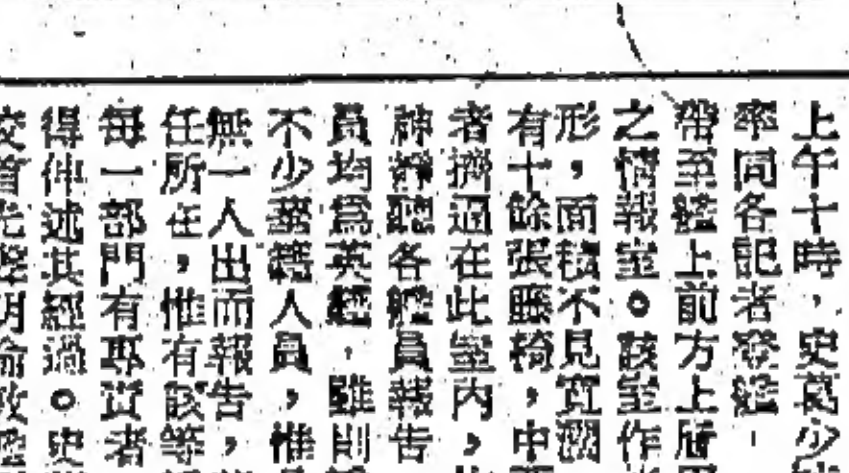 上午十時，史葛少
率同各記者登艦，
帶至艦上前方上層
之情報室。該室作
形，面積不見寬濶
有十餘張睡椅，中
者擠迫在此室內，
神靜聽各艦員報告
員均為英籍，雖則
不少華籍人員，惟
無一人出而報告，
任所在，惟有該等
每一部門有專責者
得伸述其經過。史
校首先聲明